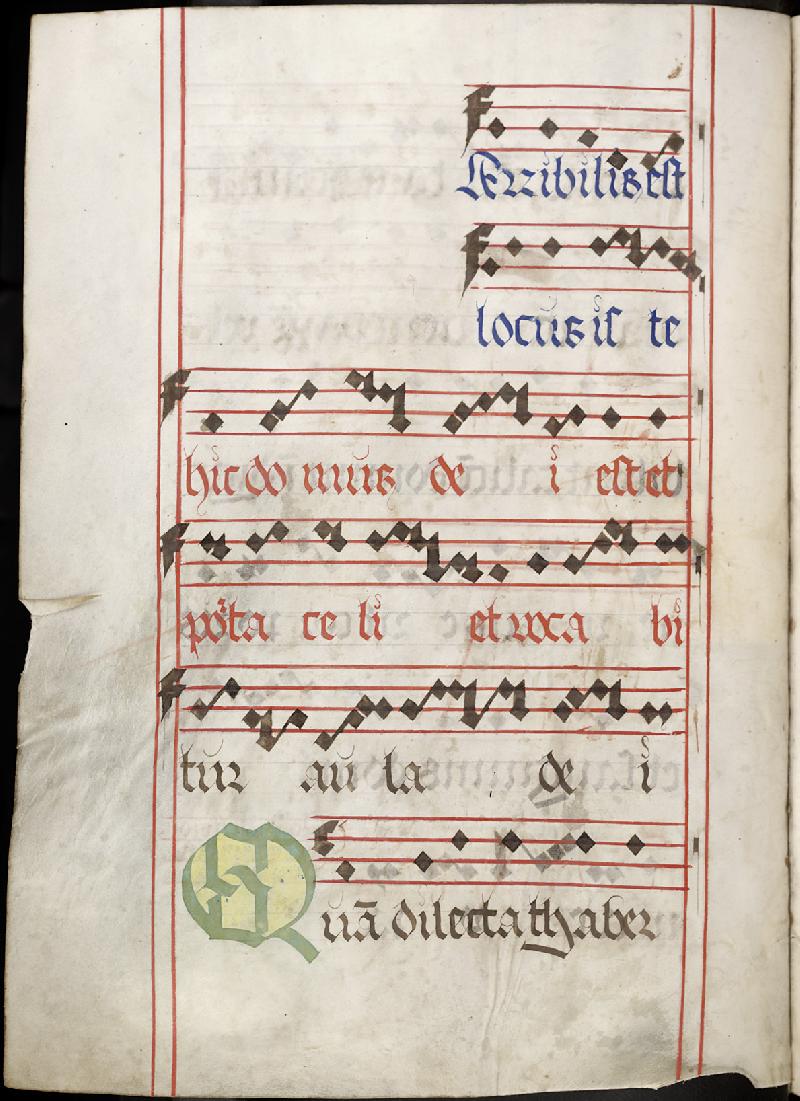 Erribilis est
locus is te
hic do mus de i est et
porta ce li et uoca bi
tur au la de i
Quā dilecta thaber